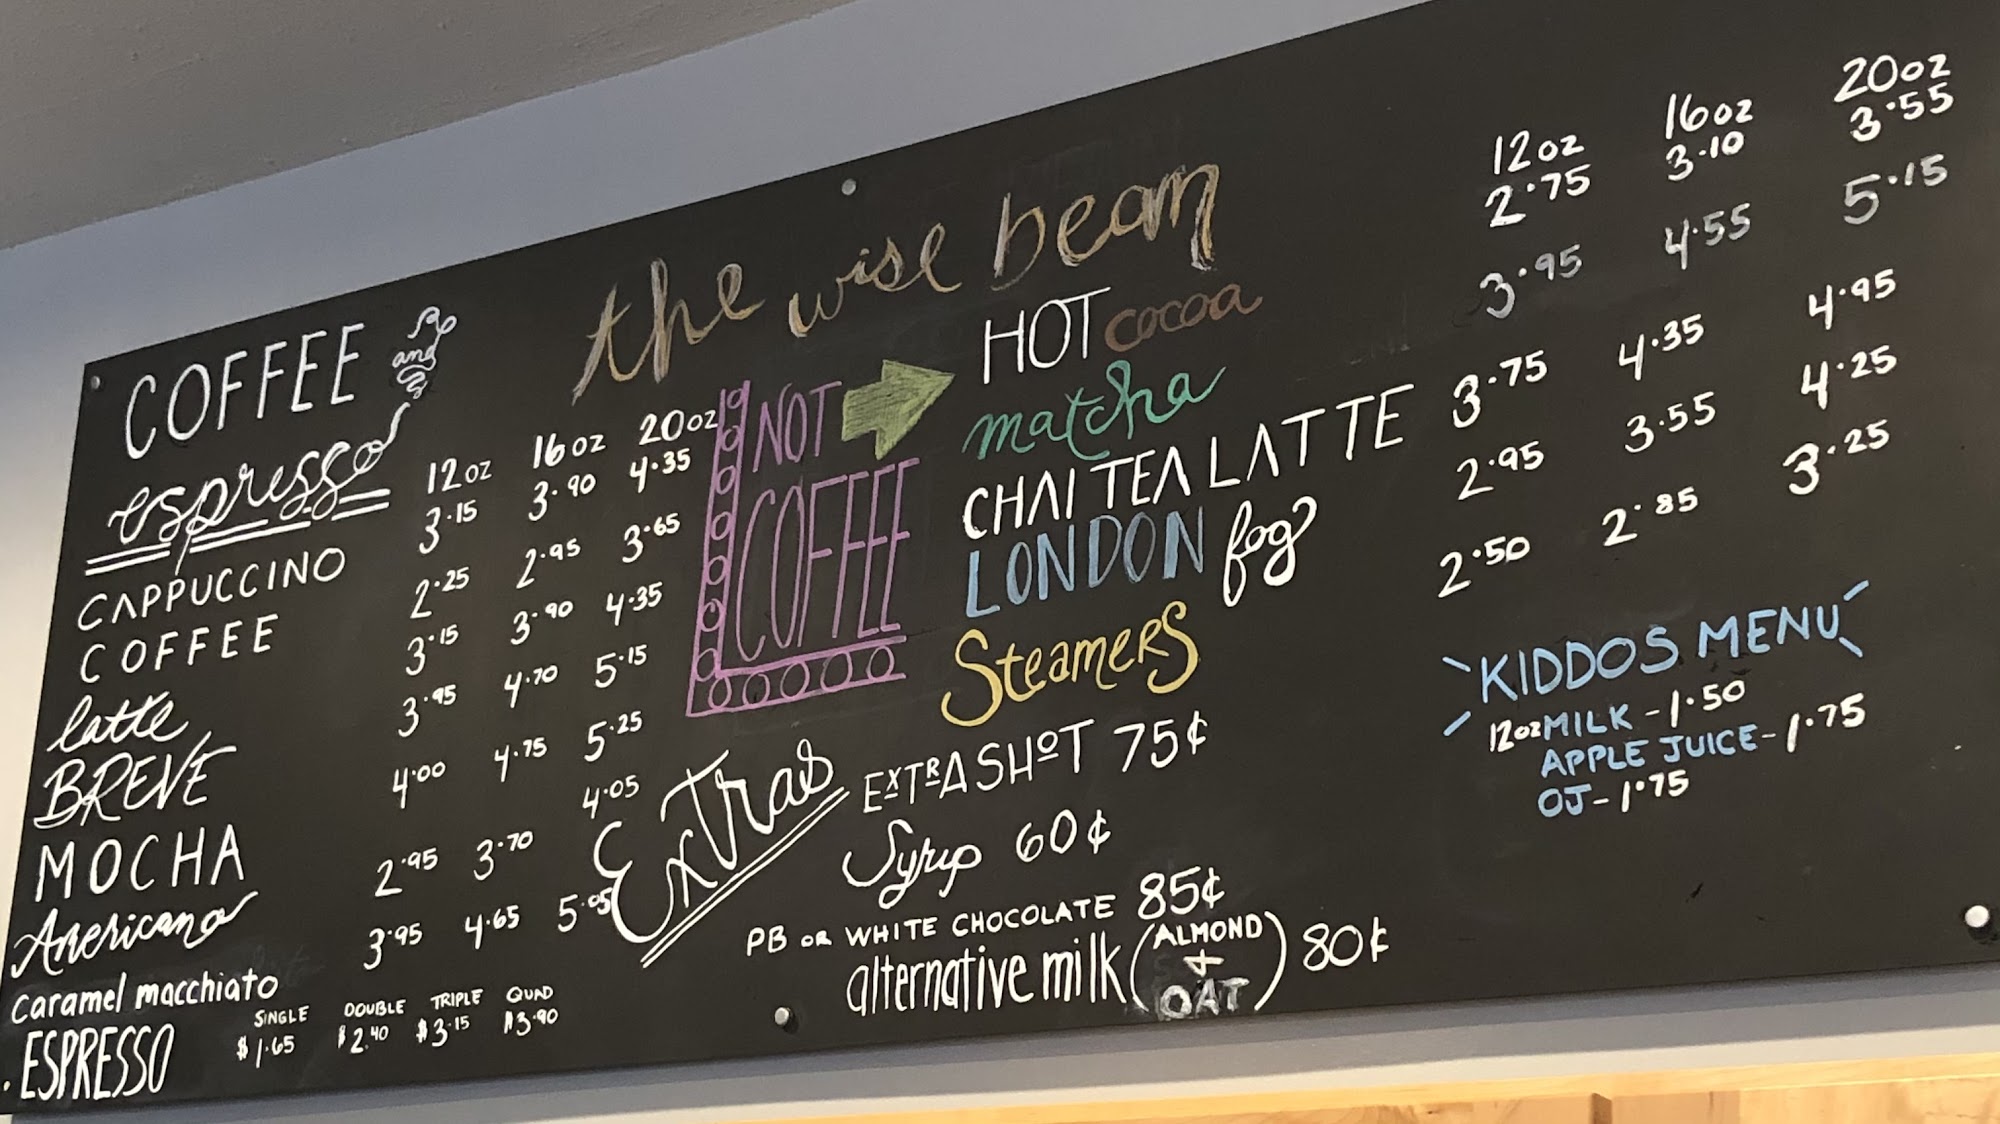 the wise bean
COFFEE and
espresso
12oz 16oz 20oz
CAPPUCCINO 3.15 3.90 4.35
COFFEE 2.25 2.95 3.65
latte 3.15 3.90 4.35
BREVE 3.95 4.70 5.15
MOCHA 4.00 4.75 5.25
Americano 2.95 3.70 4.05
caramel macchiato 3.95 4.65 5.05
SINGLE DOUBLE TRIPLE QUAD
ESPRESSO $1.65 $2.40 $3.15 $3.90
NOT
COFFEE
12oz 16oz 20oz
HOT cocoa 2.75 3.10 3.55
matcha 3.95 4.55 5.15
CHAI TEA LATTE 3.75 4.35 4.95
LONDON fog 2.95 3.55 4.25
STEAMERS 2.50 2.85 3.25
Extras
EXTRA SHOT 75¢
Syrup 60¢
PB OR WHITE CHOCOLATE 85¢
alternative milk (ALMOND + OAT) 80¢
KIDDOS MENU
12oz MILK - 1.50
APPLE JUICE - 1.75
OJ - 1.75